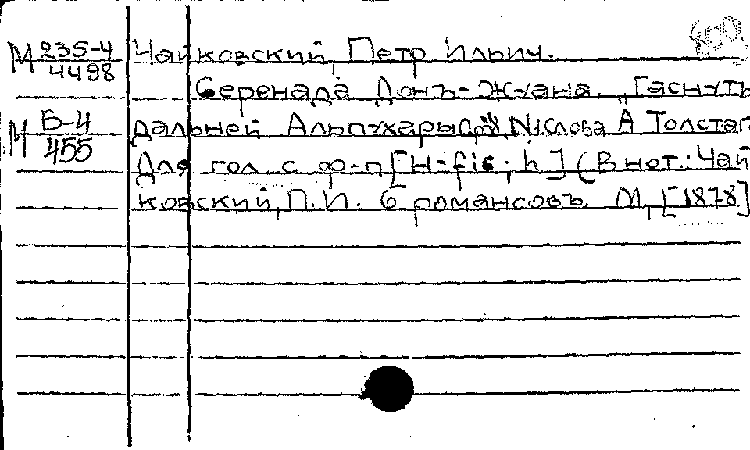 М 235-4/4498 Чайковский, Петр Ильич.
Серенада Донъ-Жуана. "Гаснутъ
М Б-4/455 дальней Альпухары.." Слова А Толстаг
Для гол. с ф-п [H-fis; h] (В нот.: Чай
ковский, П.И. 6 романсовъ. М, [1878]